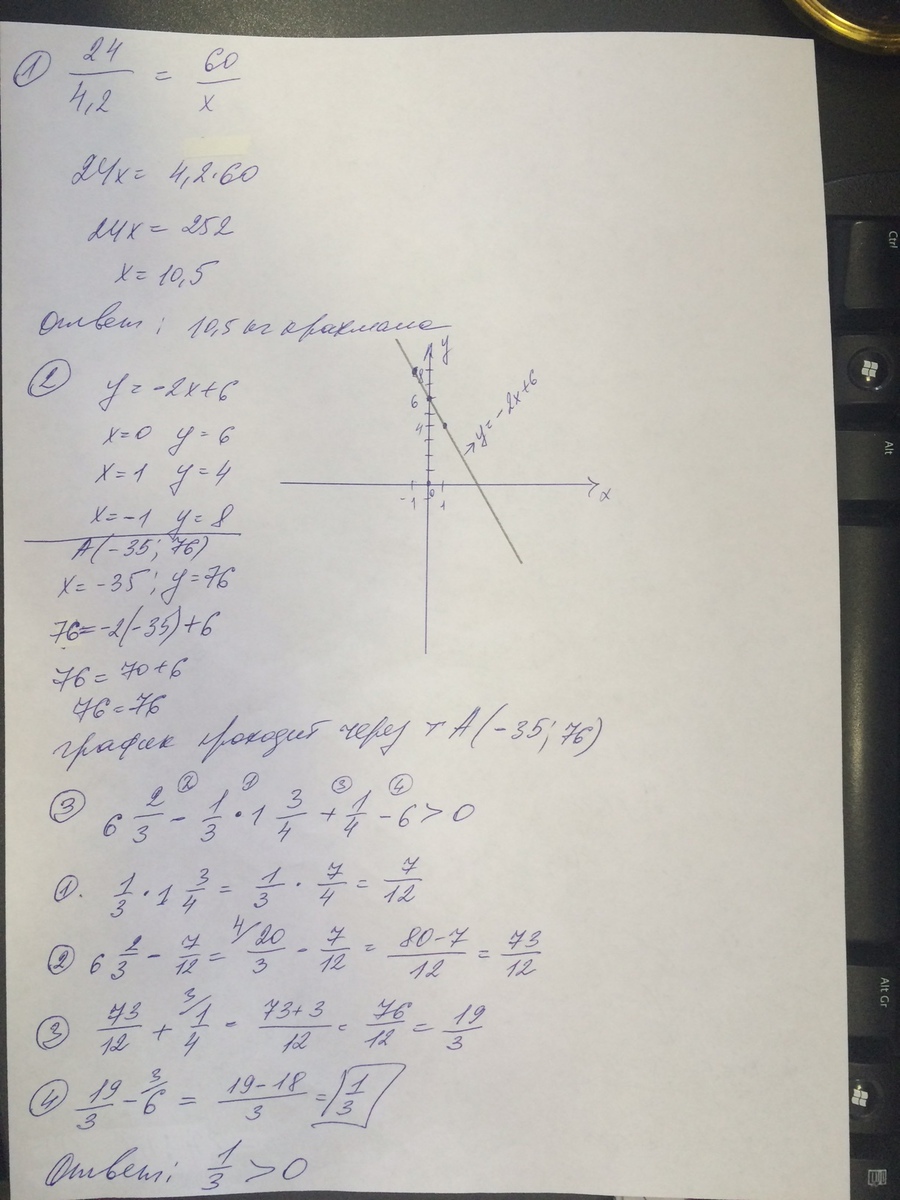 ① 24/4,2 = 60/x
24x = 4,2·60
24x = 252
x = 10,5
Ответ: 10,5 кг крахмала
② y = -2x+6
x=0 y=6
x=1 y=4
x=-1 y=8
A(-35; 76)
x = -35; y = 76
76 = -2(-35)+6
76 = 70+6
76 = 76
график проходит через т A(-35; 76)
y
8
6
4
-1 0 1
x
y = -2x+6
② ① ③ ④
③ 6 2/3 - 1/3 · 1 3/4 + 1/4 - 6 > 0
①. 1/3 · 1 3/4 = 1/3 · 7/4 = 7/12
② 6 2/3 - 7/12 = 4/ 20/3 - 7/12 = 80-7/12 = 73/12
③ 73/12 + 3/ 1/4 = 73+3/12 = 76/12 = 19/3
④ 19/3 - 3/ 6 = 19-18/3 = 1/3
Ответ: 1/3 > 0
Ctrl
Alt
Alt Gr